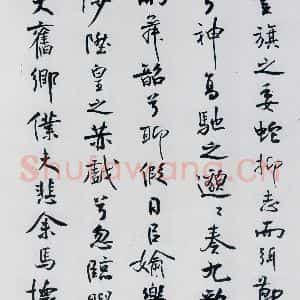 旗之委蛇抑志而弭節
兮神高馳之邈〻奏九歌
而舞韶兮聊假日㠯婾樂
陟陞皇之赫戲兮忽臨睨
夫舊鄉僕夫悲余馬懷
Shufawang.cn